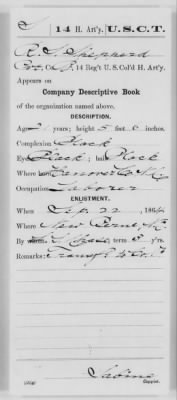 S 14 H. Art'y. U.S.C.T.
R. S. Sheppard
Pvt., Co. B, 14 Reg't U. S. Col'd H. Art'y.
Appears on
Company Descriptive Book
of the organization named above.
DESCRIPTION.
Age years; height 5 feet 6 inches.
Complexion Black
Eyes Black; hair Black
Where Hanover Co.
Occupation Laborer
ENLISTMENT.
When Sep. 22, 1864
Where New Berne, N.C.
By whom ; term 3 y'rs.
Remarks: Transf'd to Co.
Copyist.